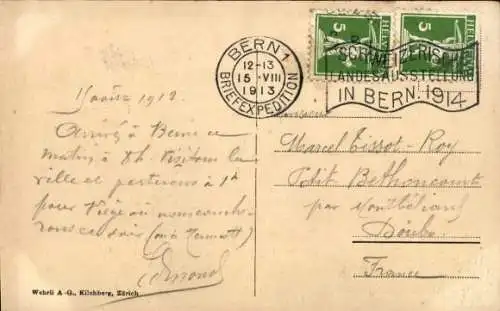 BERN 1
12-13
15. VIII
1913
BRIEFEXPEDITION
5 5
HELVETIA
SCHWEIZERISCHE
LANDESAUSSTELLUNG
IN BERN. 1914
15 août 1913
Arrivé à Berne ce
matin à 8h. Visitons la
ville et partirons à 1h
pour Viège où nous couche-
rons ce soir
Monsieur
Marcel Tissot-Roy
Petit Bethoncourt
par Montbéliard
Doubs
France
Wehrli A-G., Kilchberg, Zürich